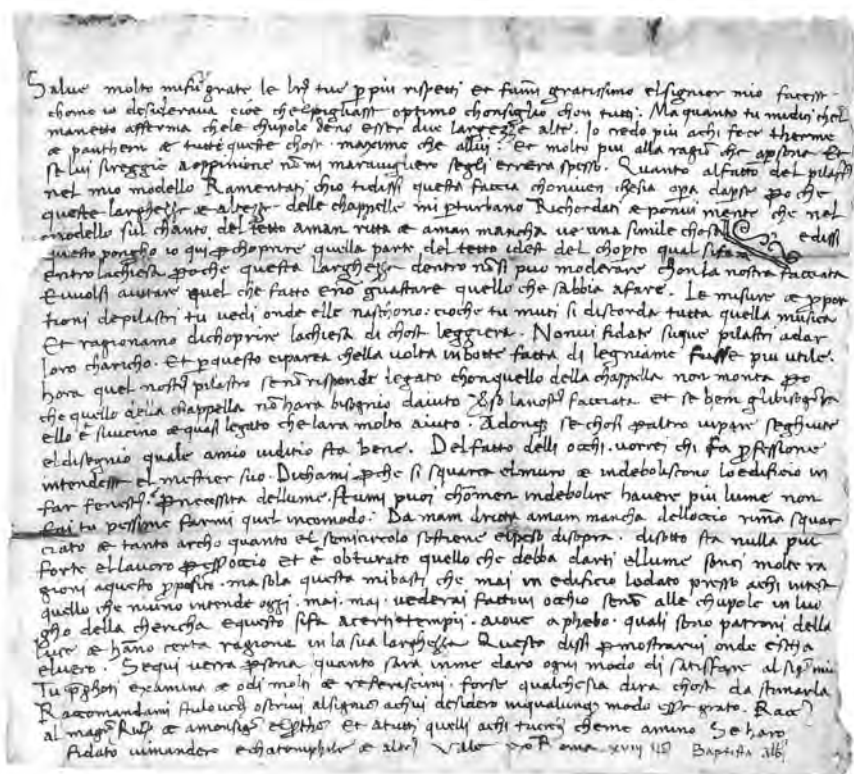 Salve molto mi fu grate le lrē tue p più rispetti et fumi gratissimo el signior mio facesse
chome io desiderava cioè chel pigliasse optimo chonsiglio chon tutti. Ma quanto tu mi di chel
manetto afferma chele chupole deno esser due largezze alte. Io credo più a chi fece therme
et pantheon et tutte queste chose maxime che allui. Et molto più alla ragion che a psona. Et
se lui si reggie a oppinione nō mi maraviglierò segli errera spesso. Quanto al fatto del pilastro
nel mio modello Ramentati chio ti dissi questa faccia chonvien che sia opa da pse po che
queste larghezze et altezze delle chappelle mi pturbano. Richordati et ponvi mente che nel
modello sul chanto del tetto a man ritta et a man mancha ve una simile chosa e dissi
questo pongho io qui p choprire quella parte del tetto idest del chopto qual si farà
entro la chiesa po che questa larghezza dentro nō si può moderare chon la nostra facciata
e vuolsi aiutare quel che fatto e nō guastare quello che sabbia a fare. Le misure et ppor
tioni de pilastri tu vedi onde elle naschono: ciò che tu muti si discorda tutta quella musica
Et ragionamo di choprire la chiesa di chosa leggiera. Non vi fidate su que pilastri a dar
loro charicho. Et p questo ci parea che la volta in botte fatta di legniame fusse più utile.
hora quel nostro pilastro se nō risponde legato chon quello della chappella non monta po
che quello della chappella nō harà bisognio daiuto vso la nostra facciata et se bem gli bisogniera
ello è si vicino et quasi legato che larà molto aiuto. Adonqe se chosi p altro vi pare seghuite
el disegnio quale a mio iuditio sta bene. Del fatto delli occhi. vorrei chi fa pfessione
intendesse el mestier suo. Dichami pche si squarca el muro et indeboliscono lo edificio in
far fenestre? p necessità del lume. Se tu mi puoi chō men indebolire havere più lume non
fai tu pessime farmi quel incomodo? Da mam dricta a mam mancha dell occio riman squar
ciato et tanto archo quanto el semicircolo sostiene el peso di sopra. di sotto sta nulla più
forte el lavoro p esser occio et è obturato quello che debba darti el lume sonci molte ra
gioni a questo pposito. ma sola questa mi basti che mai in edificio lodato presso a chi intese
quello che niuno intende oggi. mai. mai. vederai fattovi occhio senō alle chupole in luo
gho della chericha e questo si fa a certi tempii. a iove a phebo. quali sono patroni della
luce et hano certa ragione in la sua larghezza. Questo dissi p mostrarvi onde escha
el vero. Se qui verrà psona quanto sarà in me darò ogni modo di satisfare al sigr mio
Tu pghoti examina et odi molti et referiscimi. forse qualche sia dirà chosa da stimarla
Raccomandami se tu lo vedi o scrivi al signior a chui desidero in qualunqe modo esser grato. Racc
al magco Ruberto et a monsigre el ptho. et a tutti quelli a chi tu credi che me amino Se harò
fidato vi manderò echatomphile et altro Vale. Ex Roma xviii 9bre Baptista alb'